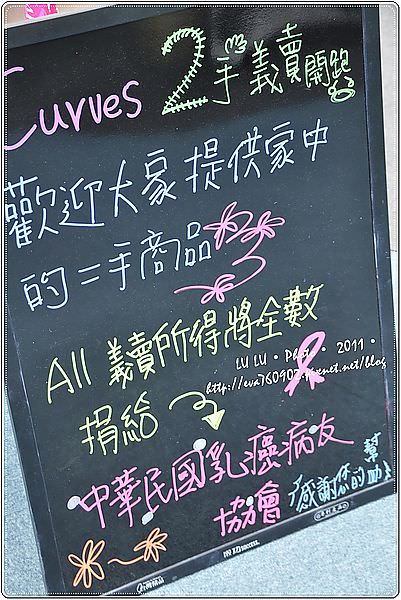 Curves 2手義賣開跑
歡迎大家提供家中
的二手商品
All 義賣所得將全數
捐給
中華民國乳癌病友
協會
感謝您的幫助
LU LU • Photo • 2011 •